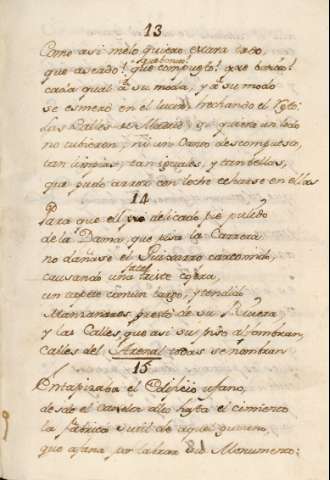 13
Como asi melo quiero estava todo,
que aseado! que compuesto!
cada qual à su moda, y à su modo
se esmerò en el lucir, hechando el
Las Calles de Madrid, ni quiera un lodo
no tubieron; ni un Canto descompuesto,
tan limpias, tan iguales, y tan bellas,
que pudo arroz con leche echarse en ellas
14
Para que el delicado pie pulido
de la Dama, que pisa la Carrera
no dañase el Guijarro carcomido,
causando una fatal
un tapete comun largo, y tendido
Manzanares prestò de su Rivera
y las Calles que asi supo alfombrar,
calles del Arenal todas se nombran
15
Entapizaba el Edificio ufano,
desde el canto alto hasta el cimiento
la fabrica sutil de aquel gusano,
que afana por labrar su Monumento: